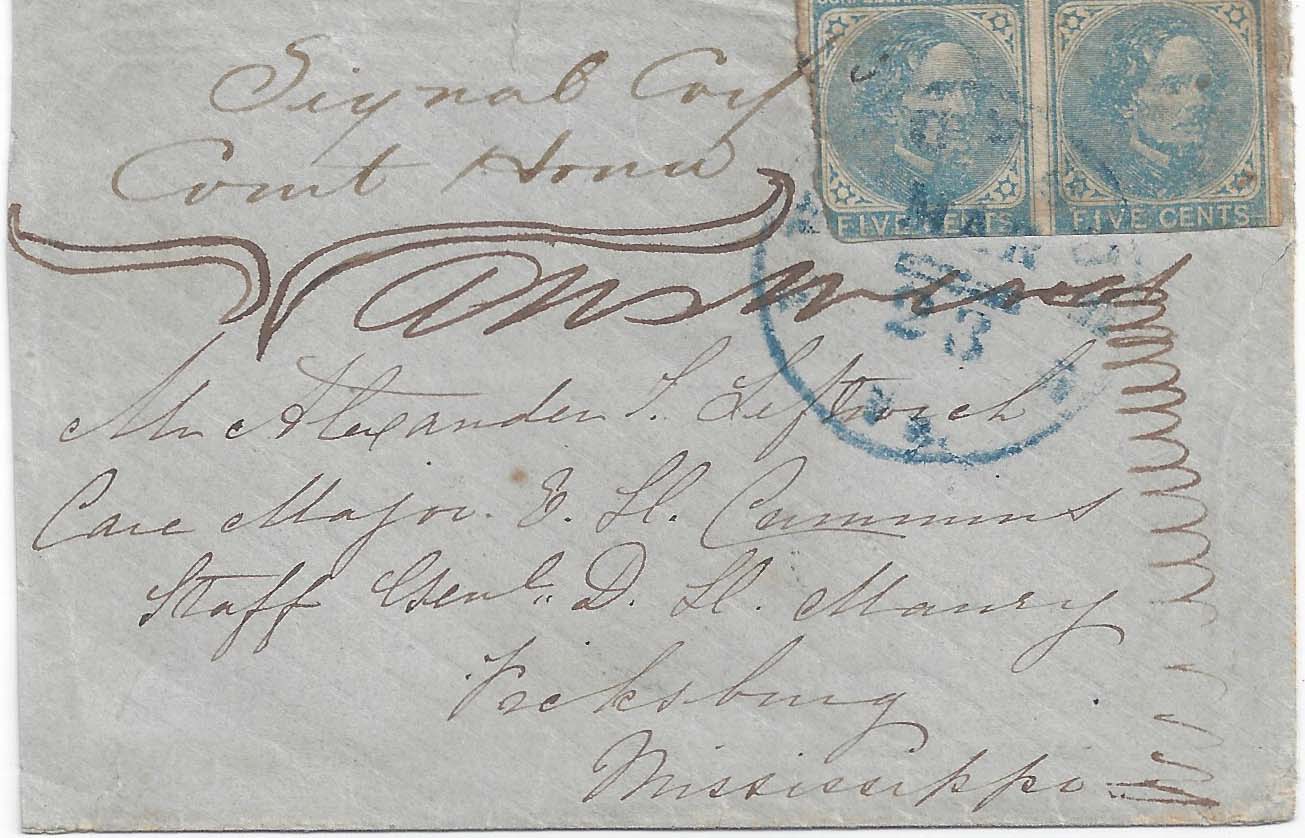 Signal Corps
Court House
FIVE CENTS FIVE CENTS
Answered
23
VA.
Mr Alexander S. Leftwich
Care Major. E. H. Cummins
Staff Genl. D. H. Maury
Vicksburg
Mississippi